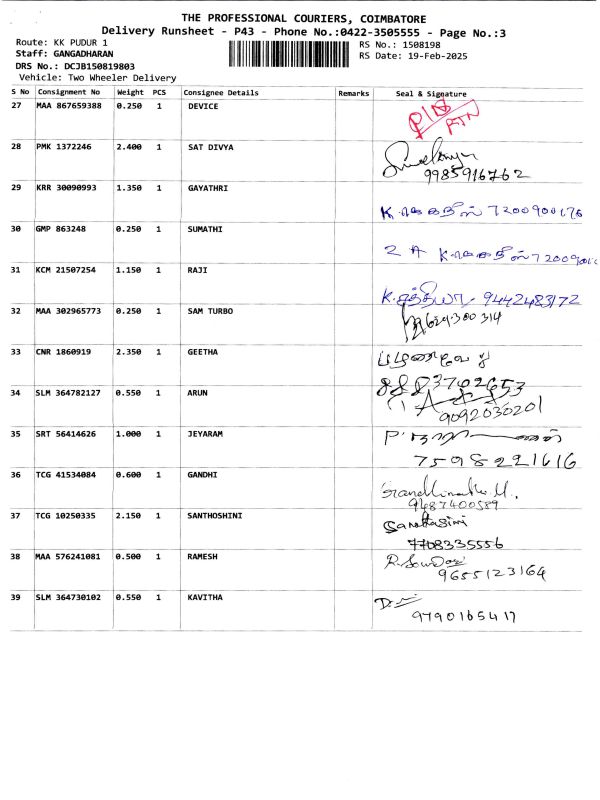 THE PROFESSIONAL COURIERS, COIMBATORE
Delivery Runsheet - P43 - Phone No.:0422-3505555 - Page No.:3
Route: KK PUDUR 1 RS No.: 1508198
Staff: GANGADHARAN RS Date: 19-Feb-2025
DRS No.: DCJB150819803
Vehicle: Two Wheeler Delivery
S No Consignment No Weight PCS Consignee Details Remarks Seal & Signature
27 MAA 867659388 0.250 1 DEVICE
28 PMK 1372246 2.400 1 SAT DIVYA
9985916762
29 KRR 30090993 1.350 1 GAYATHRI
7200900176
30 GMP 863248 0.250 1 SUMATHI
31 KCM 21507254 1.150 1 RAJI
9442483172
32 MAA 302965773 0.250 1 SAM TURBO
33 CNR 1860919 2.350 1 GEETHA
8883702653
34 SLM 364782127 0.550 1 ARUN
9092030201
35 SRT 56414626 1.000 1 JEYARAM
7598221616
36 TCG 41534084 0.600 1 GANDHI
9487400589
37 TCG 10250335 2.150 1 SANTHOSHINI
7708335556
38 MAA 576241081 0.500 1 RAMESH
9655123164
39 SLM 364730102 0.550 1 KAVITHA
9790165417